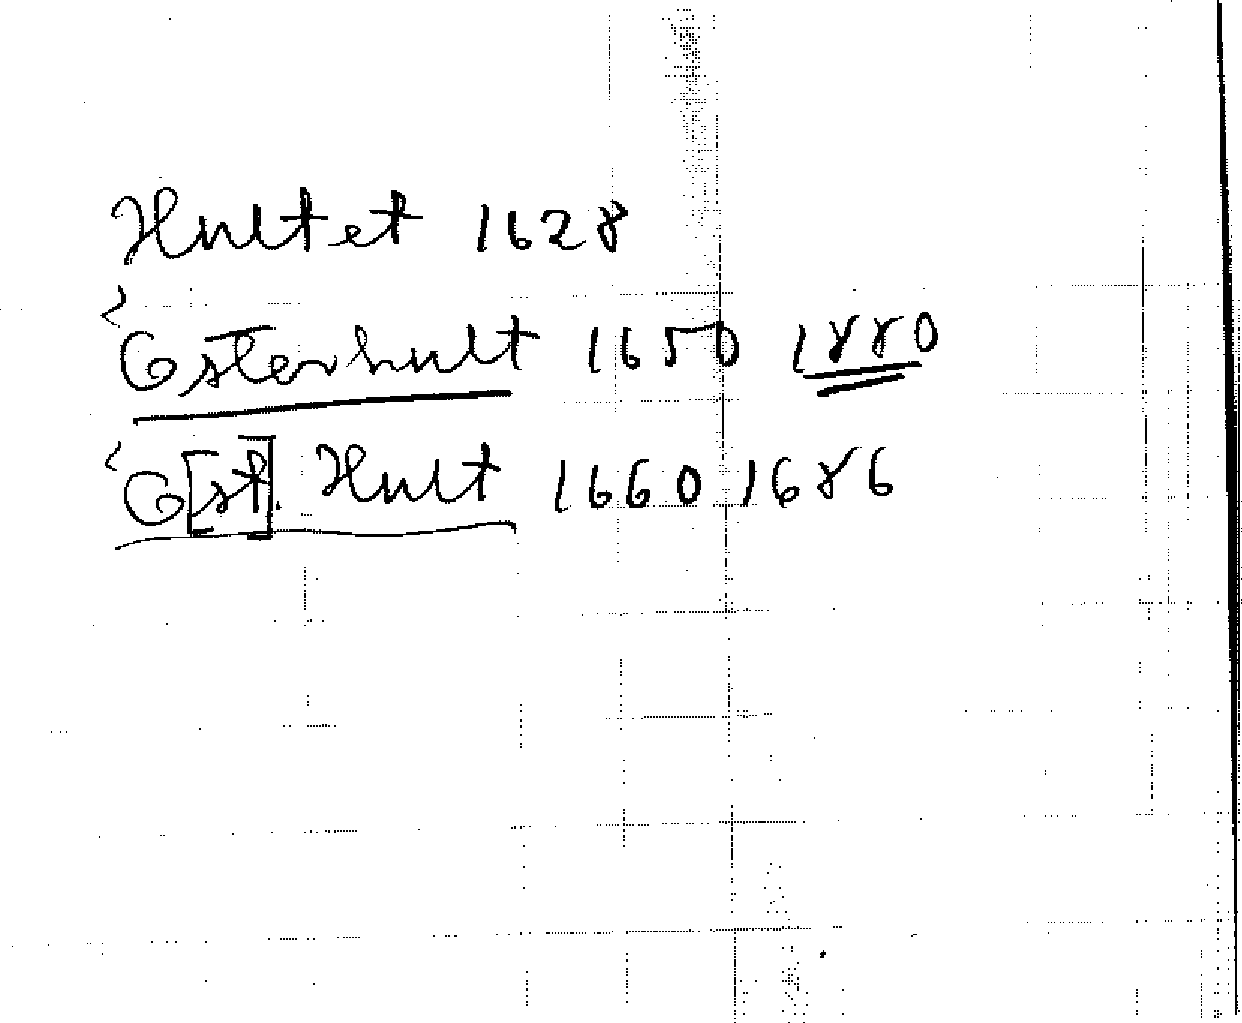 Hultet 1628
Österhult 1650 1880
Ö[st]. Hult 1660 1686